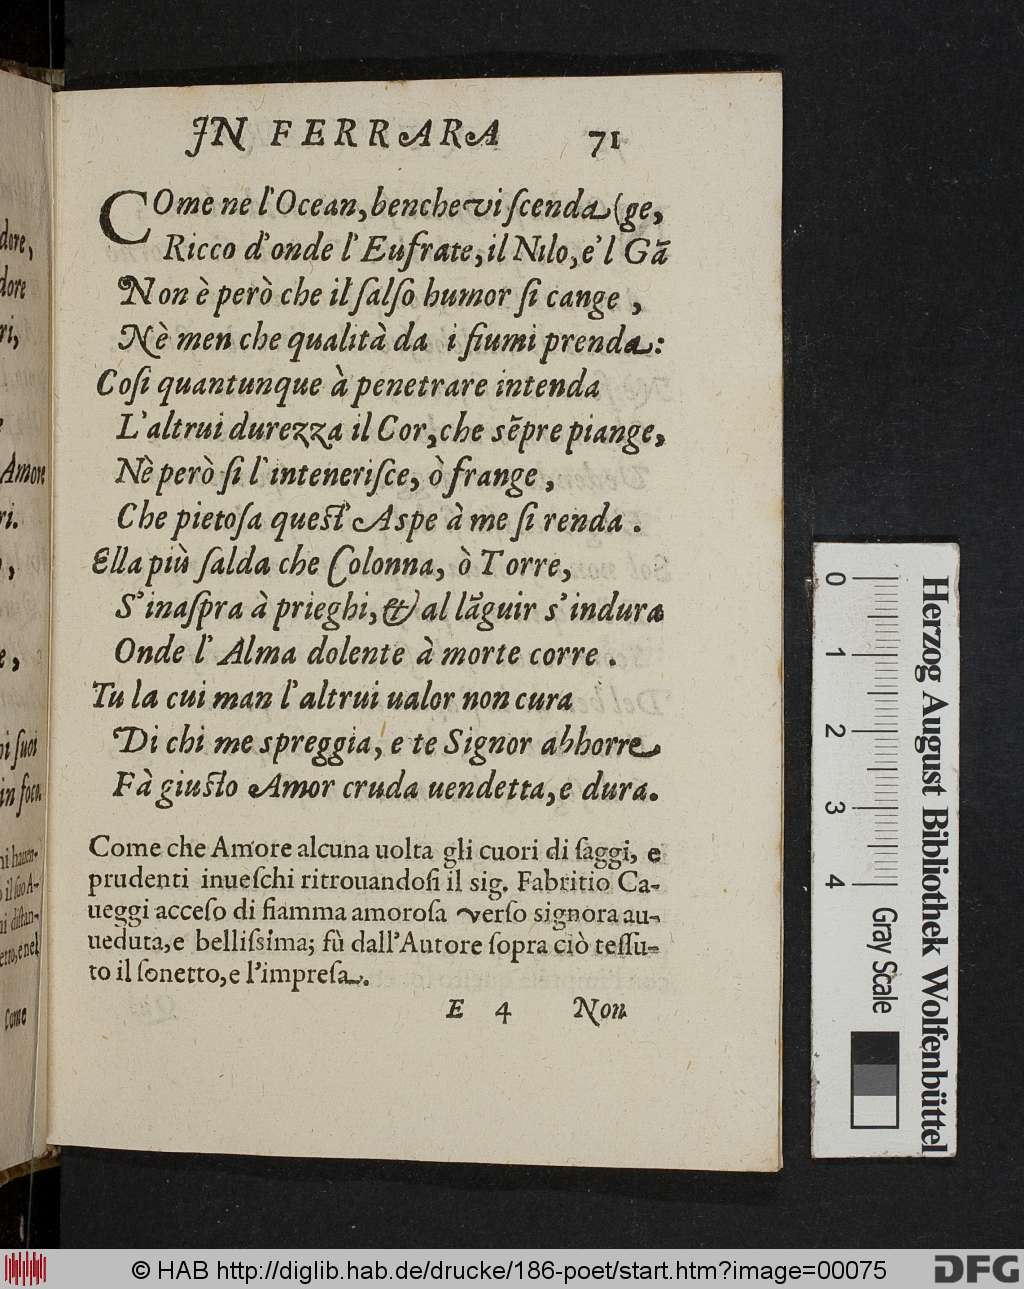 dore,
dore
ri,
Amore
ri.
e,
ni suoi
in foco.
Come
IN FERRARA 71
COme ne l'Ocean, benche vi ſcenda (ge,
Ricco d'onde l'Eufrate, il Nilo, e'l Gā
Non è però che il ſalſo humor ſi cange ,
Nè men che qualità da i fiumi prenda:
Coſi quantunque à penetrare intenda
L'altrui durezza il Cor, che sēpre piange,
Nè però ſi l'inteneriſce, ò frange ,
Che pietoſa queſt' Aspe à me ſi renda .
Ella più ſalda che Colonna, ò Torre,
S'inaſpra à prieghi, & al lāguir s'indura
Onde l'Alma dolente à morte corre .
Tu la cui man l'altrui ualor non cura
Di chi me spreggia, e te Signor abhorre
Fà giuſto Amor cruda uendetta, e dura.
Come che Amore alcuna uolta gli cuori di ſaggi, e
prudenti inueſchi ritrouandoſi il sig. Fabritio Ca-
ueggi acceſo di fiamma amoroſa verſo signora au-
ueduta, e belliſsima; fù dall'Autore ſopra ciò teſſu-
to il ſonetto, e l'impreſa.
E 4 Non
0 1 2 3 4
Gray Scale
Herzog August Bibliothek Wolfenbüttel
© HAB http://diglib.hab.de/drucke/186-poet/start.htm?image=00075
DFG